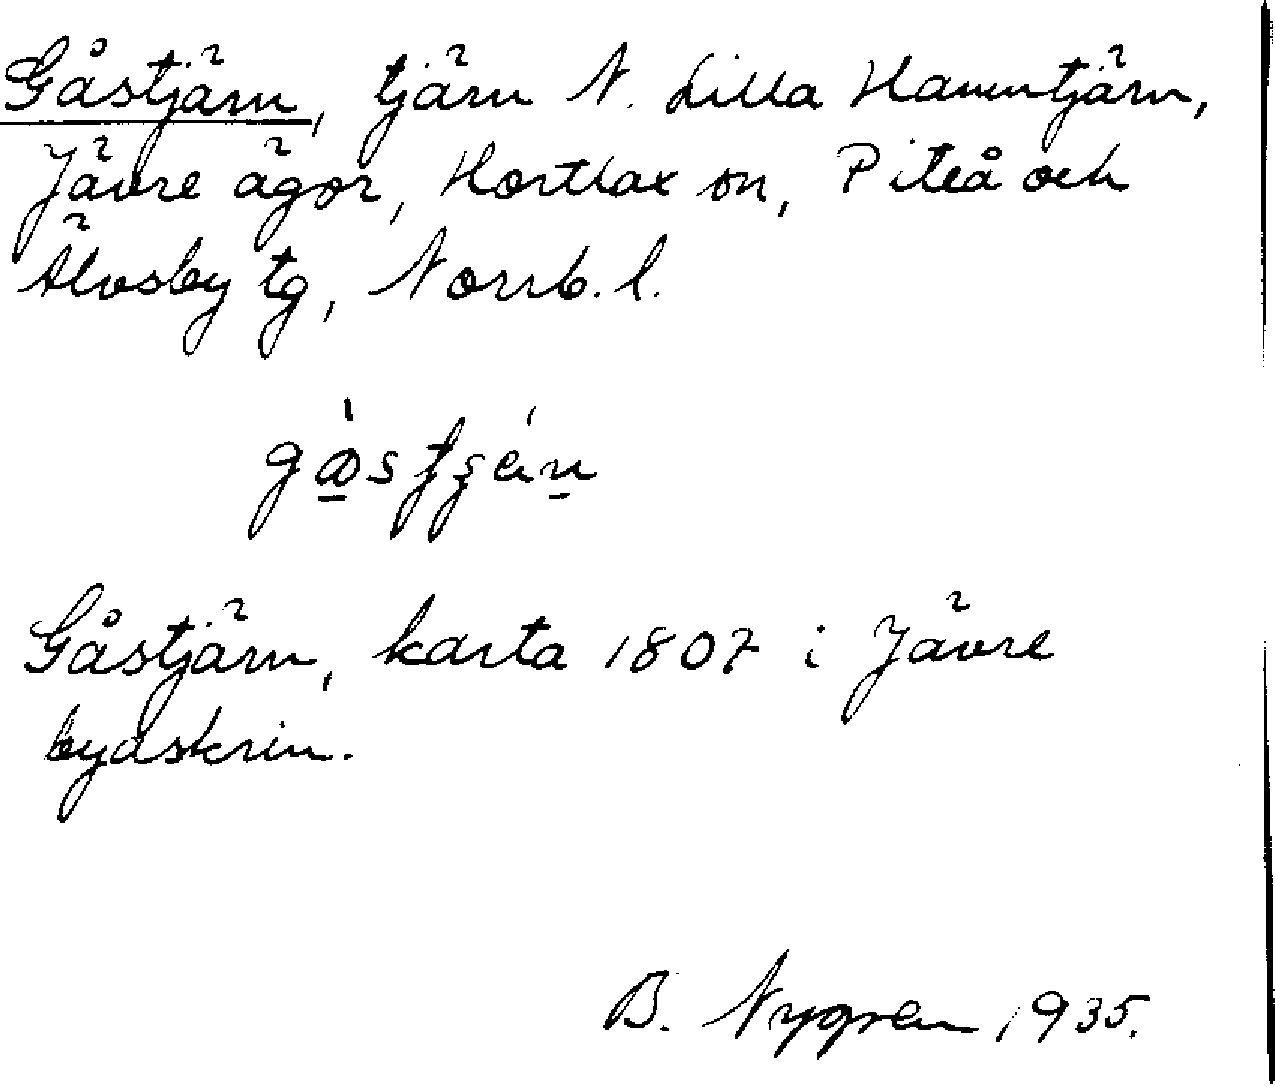 Gåstjärn, tjärn N. Lilla Hamntjärn,
Jävre ägor, Hortlax sn, Piteå och
Älvsby tg, Norrb. l.
Gåstjärn, karta 1807 i Jävre
byaskrin.
B. Nygren 1935.